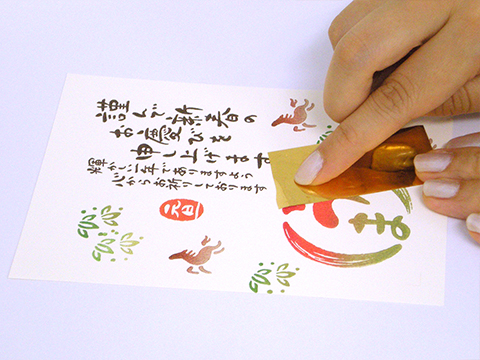 謹んで新春の
お慶びを
申し上げます
輝かしい一年でありますよう
心からお祈りしております
元旦
ま